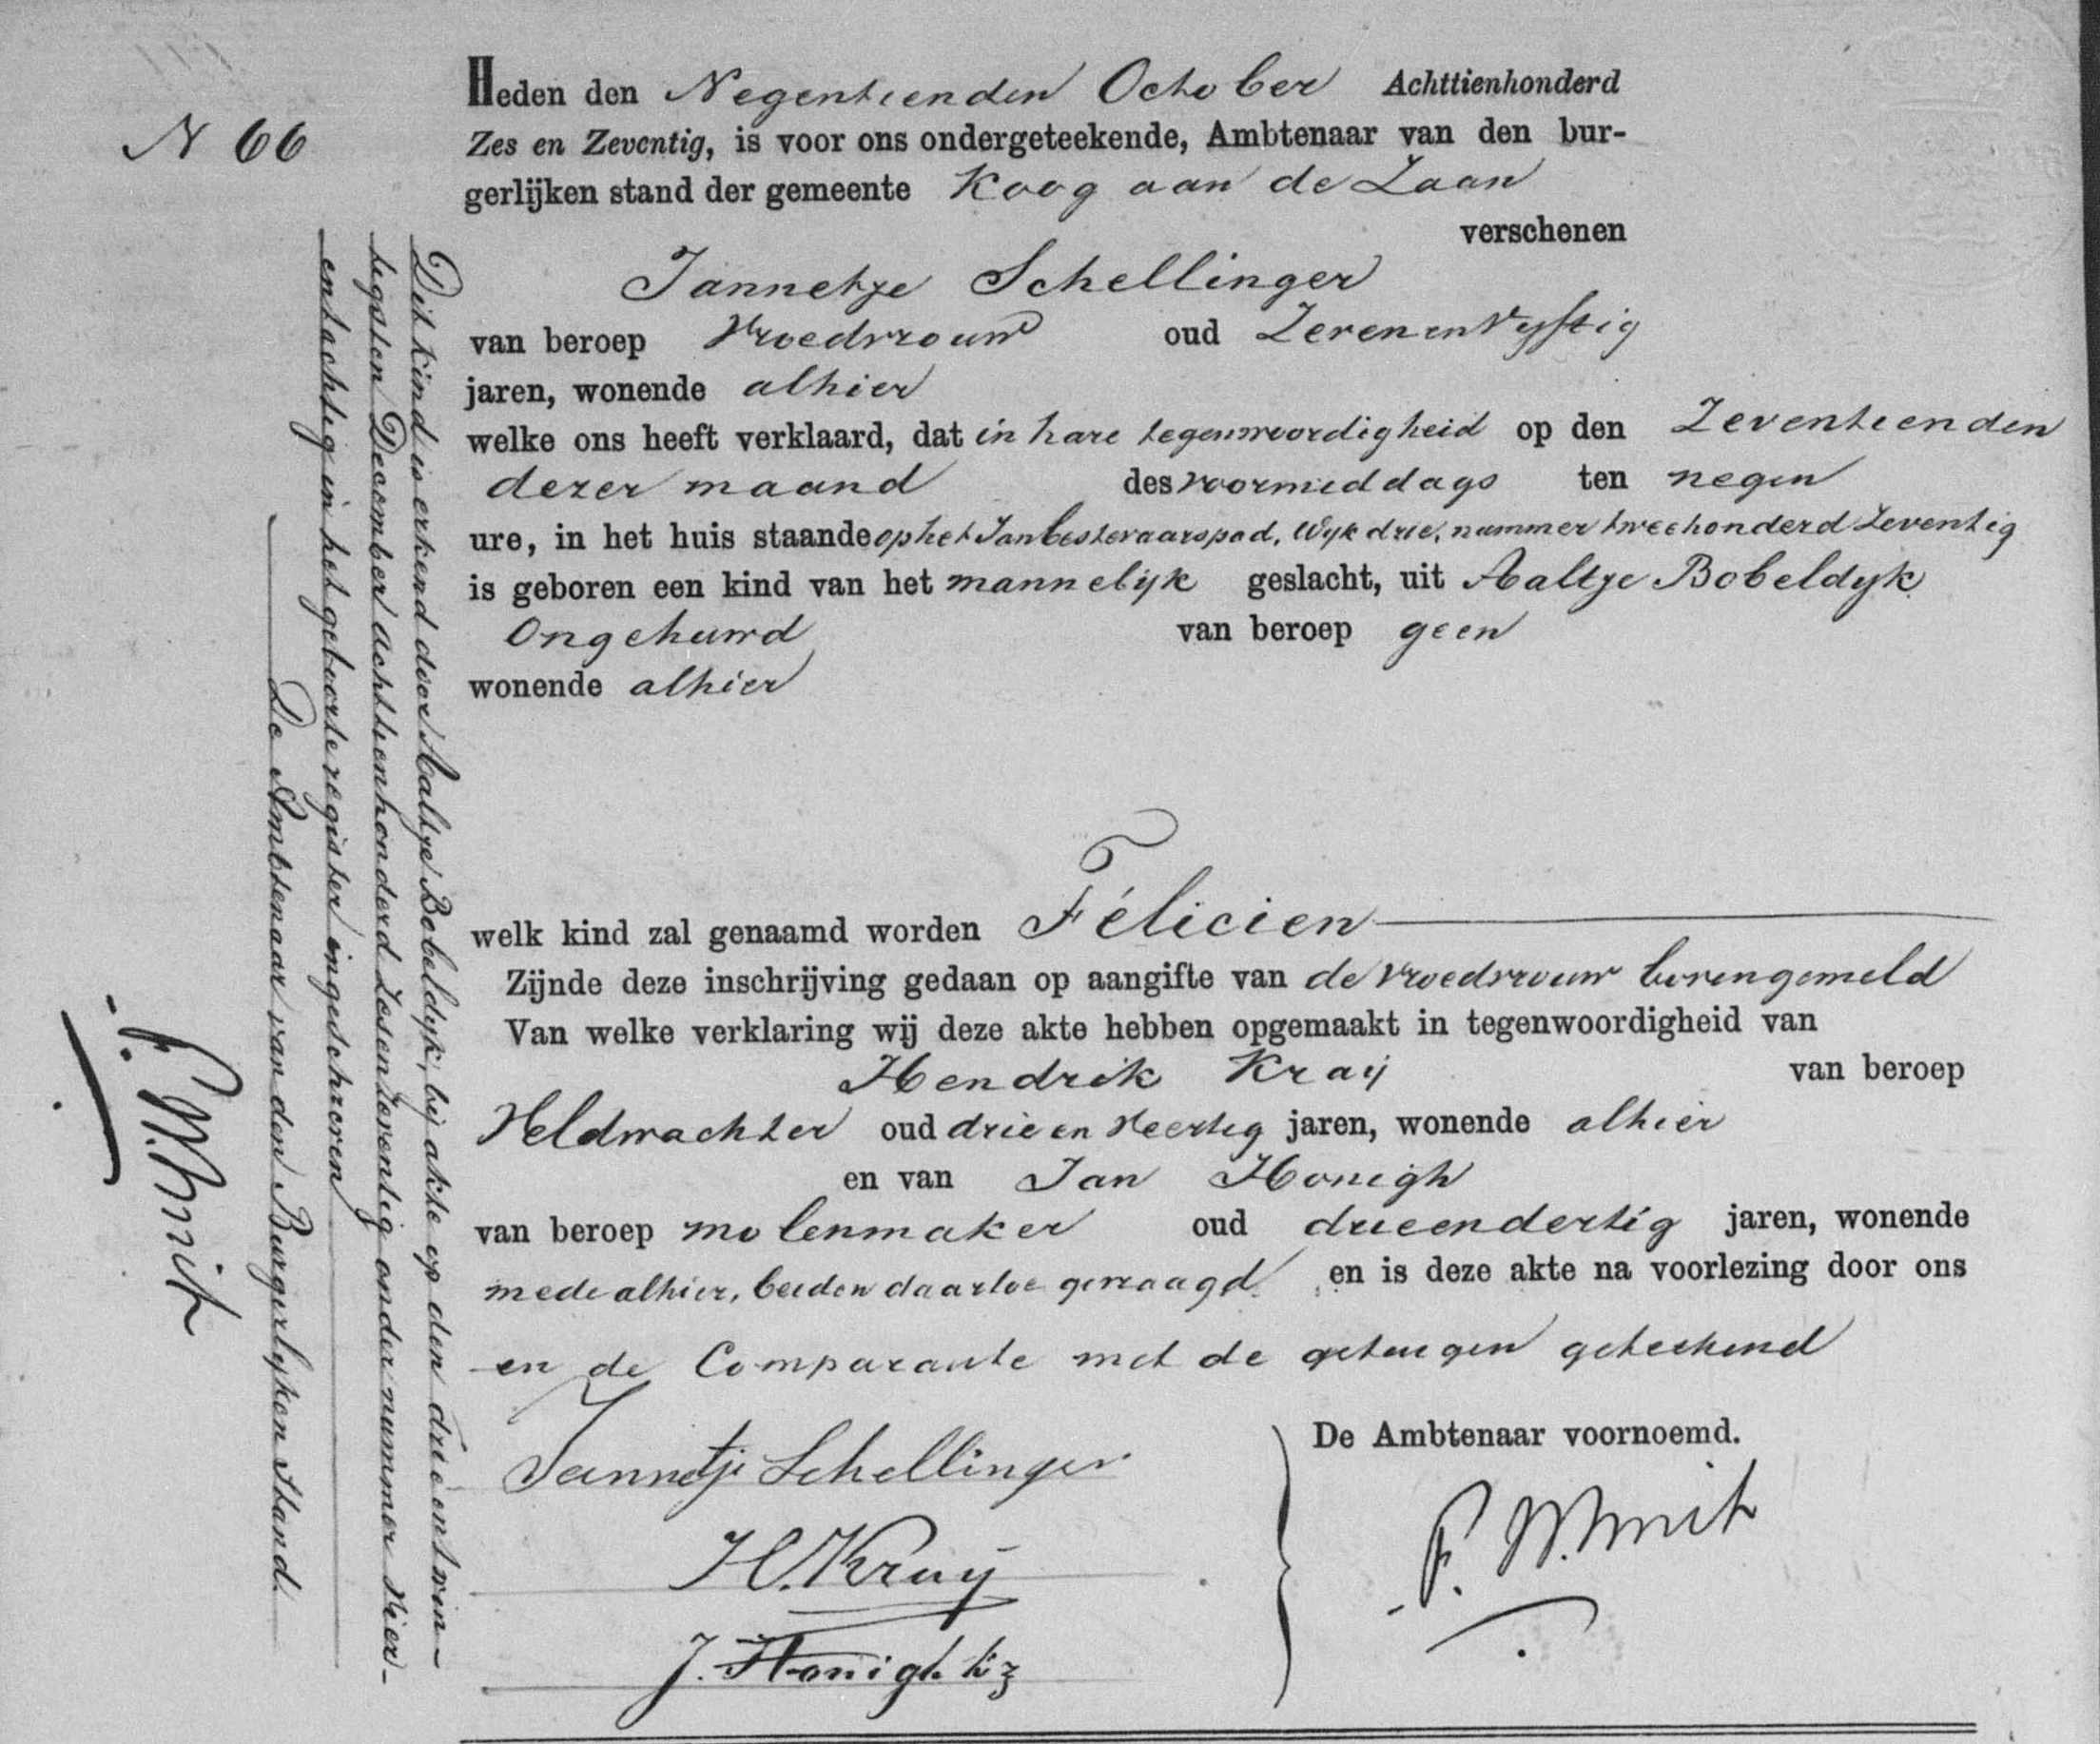 N 66
Heden den Negentienden October Achttienhonderd
Zes en Zeventig, is voor ons ondergeteekende, Ambtenaar van den bur-
gerlijken stand der gemeente Koog aan de Zaan
verschenen
Jannetje Schellinger
van beroep Vroedvrouw oud Zevenenvyftig
jaren, wonende alhier
welke ons heeft verklaard, dat in hare tegenwoordigheid op den Zeventienden
dezer maand des voormiddags ten negen
ure, in het huis staande op het Janbestevaarspad, Wyk drie, nummer tweehonderd Zeventig
is geboren een kind van het mannelyk geslacht, uit Aaltje Bobeldyk
Ongehuwd van beroep geen
wonende alhier
welk kind zal genaamd worden Félicien
Zijnde deze inschrijving gedaan op aangifte van de Vroedvrouw bovengemeld
Van welke verklaring wij deze akte hebben opgemaakt in tegenwoordigheid van
Hendrik Kray van beroep
Veldwachter oud drie en Veertig jaren, wonende alhier
en van Jan Honigh
van beroep molenmaker oud drieendertig jaren, wonende
mede alhier, beiden daartoe gevraagd en is deze akte na voorlezing door ons
en de Comparante met de getuigen geteekend
Jannetje Schellinger
H. Kray
J. Honigh Kz
De Ambtenaar voornoemd.
Dit kind is erkend door Aaltje Bobeldyk, bij akte op den drieentwin-
tigsten December achttienhonderd Zesenzeventig onder nummer Vier-
entachtig in het geboorteregister ingeschreven
De Ambtenaar van den Burgerlyken Stand.